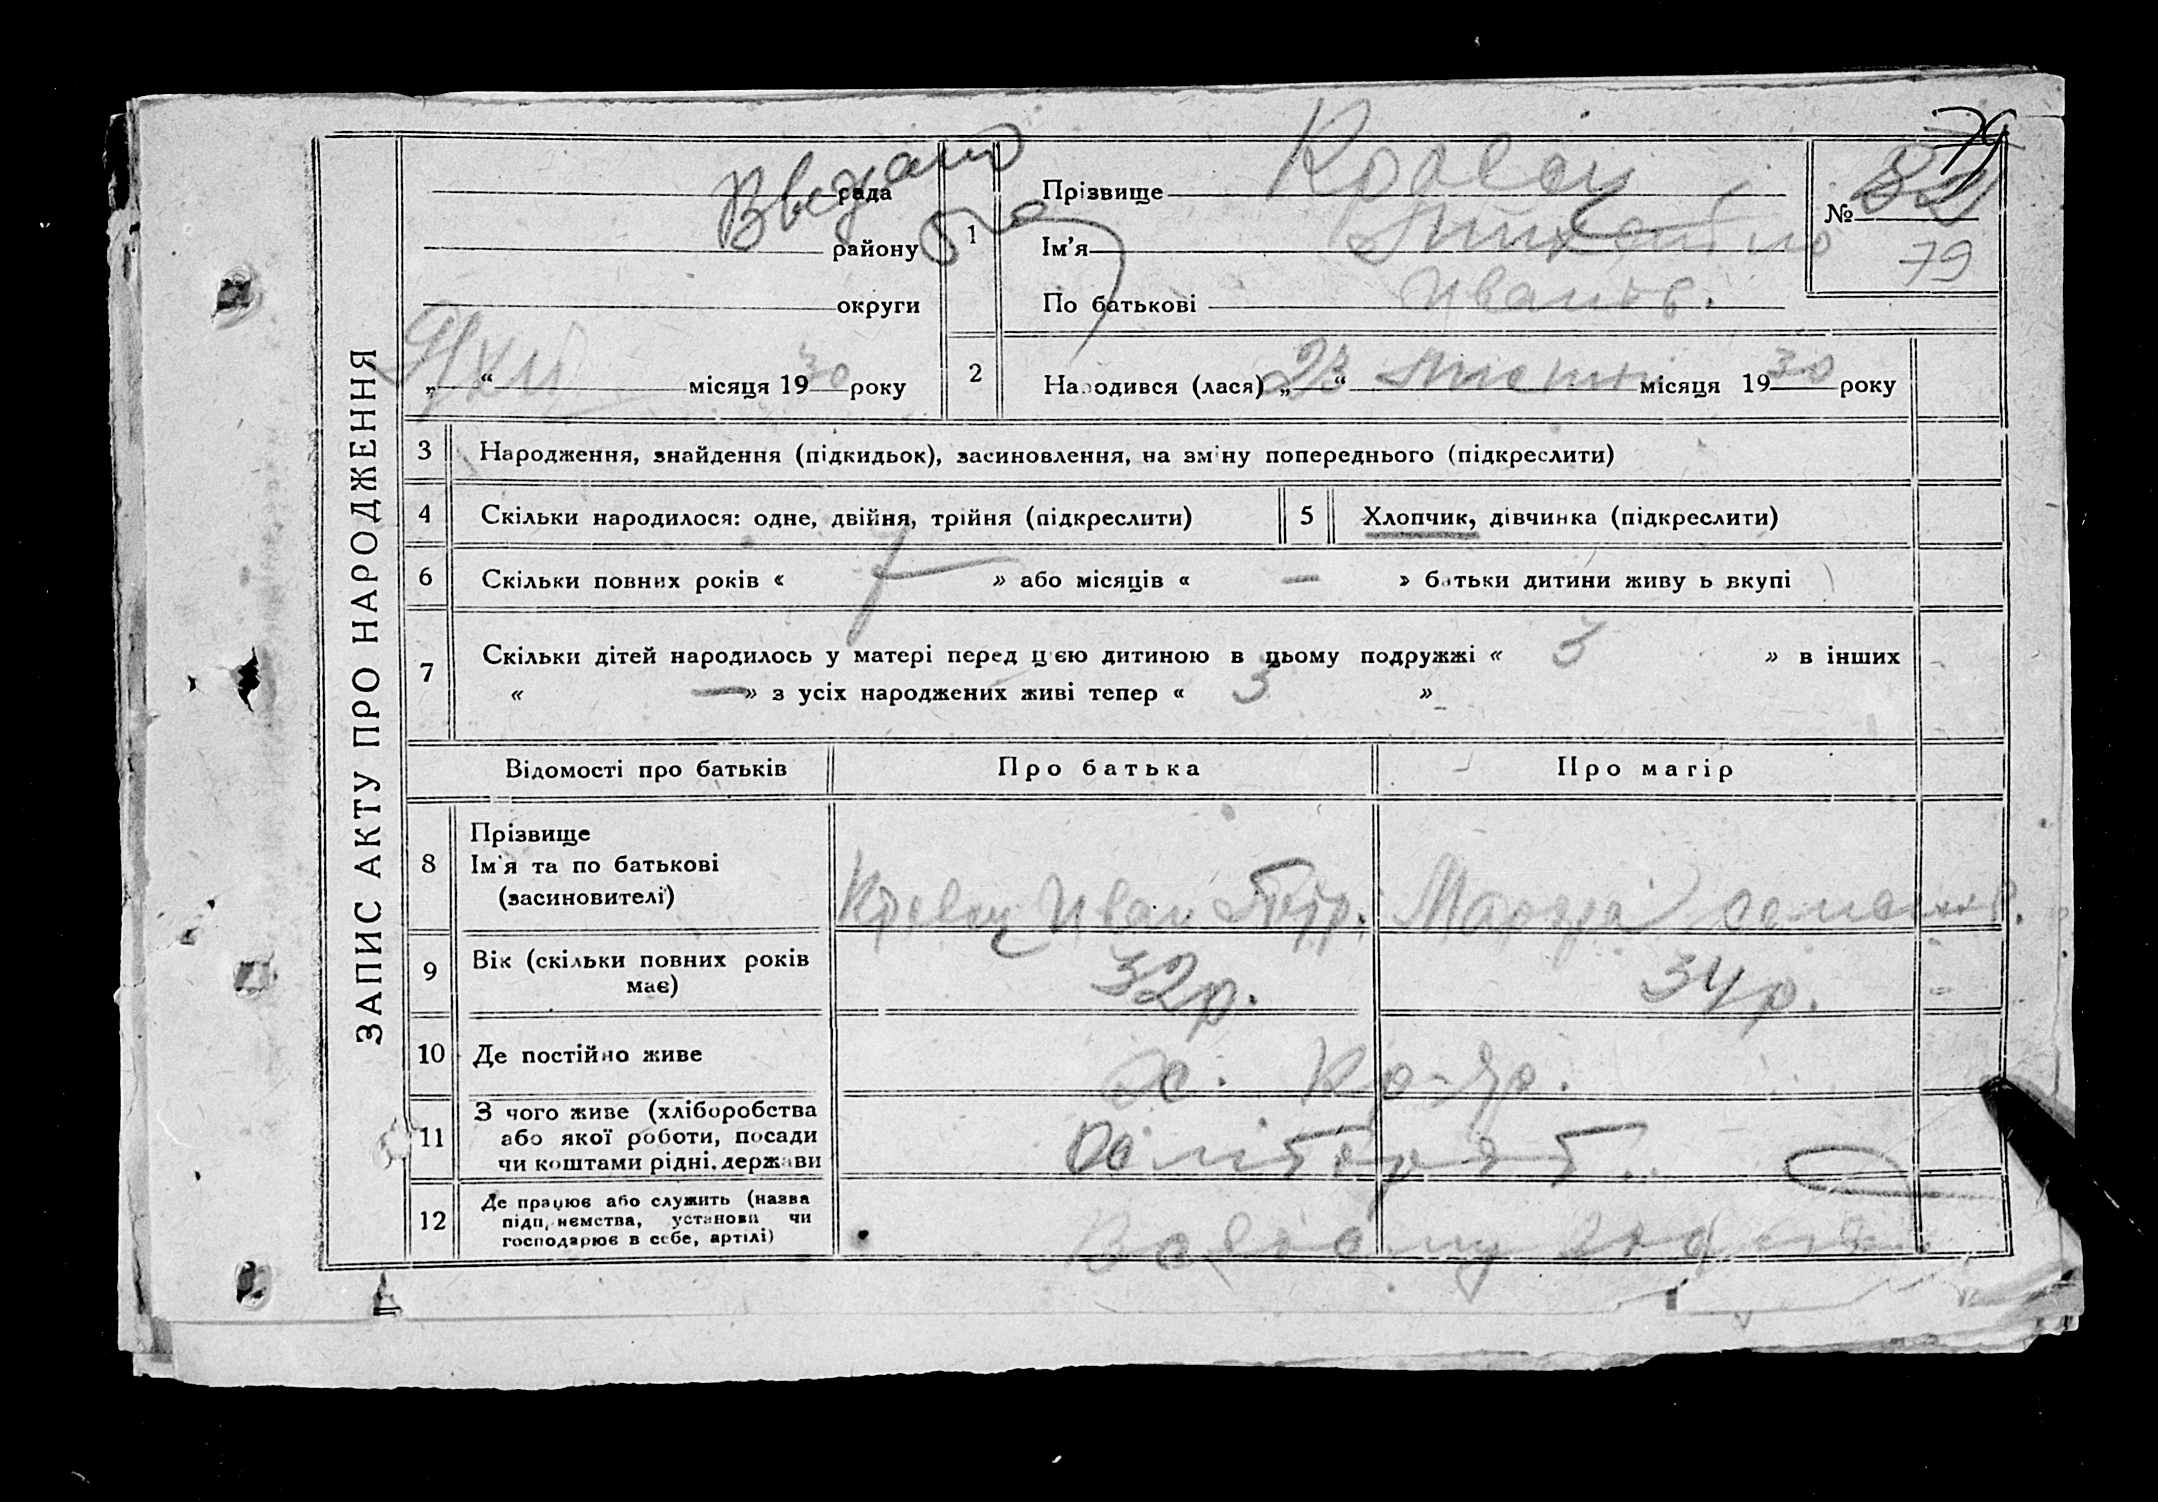 ЗАПИС АКТУ ПРО НАРОДЖЕННЯ
рада
району
округи
9/XII
„ “ місяця 1930 року
1
Прізвище Кравец
Ім'я Михайло
По батькові Иванов.
№ 82
79
79
2 Народився (лася) „23“ місяця 1930 року
3 Народження, знайдення (підкидьок), засиновлення, на зміну попереднього (підкреслити)
4 Скільки народилося: одне, двійня, трійня (підкреслити)
5 Хлопчик, дівчинка (підкреслити)
6 Скільки повних років « 7 » або місяців « — » батьки дитини живуть вкупі
7 Скільки дітей народилось у матері перед цією дитиною в цьому подружжі « 3 » в інших
« — » з усіх народжених живі тепер « 3 »
Відомості про батьків
Про батька
Про матір
8 Прізвище
Ім'я та по батькові
(засиновителі)
Кравец Иван Петр.
9 Вік (скільки повних років
має)
32р.
34р.
10 Де постійно живе
11 З чого живе (хліборобства
або якої роботи, посади
чи коштами рідні, держави
12 Де працює або служить (назва
підприємства, установи чи
господарює в себе, артілі)